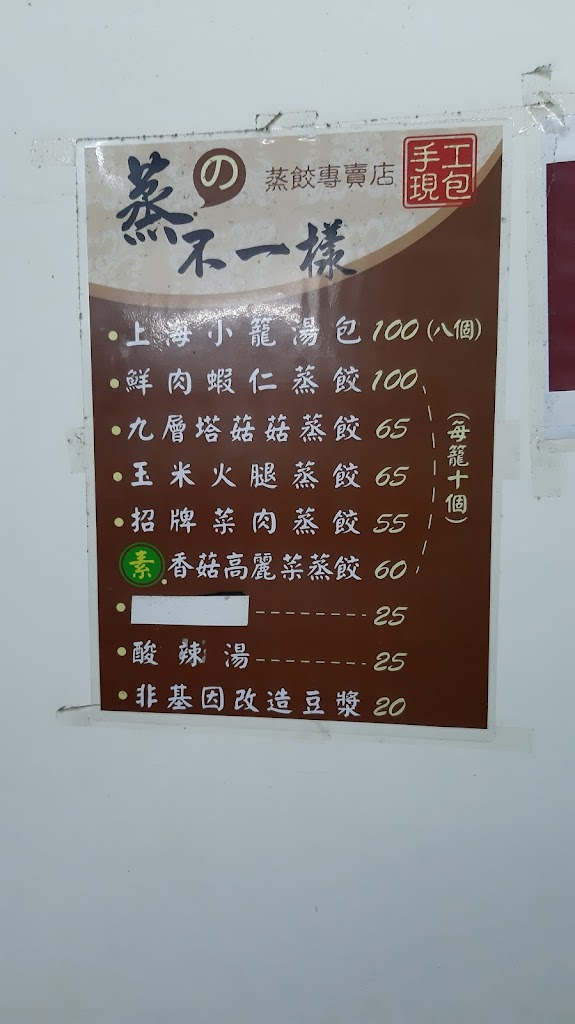 蒸の不一樣
蒸餃專賣店
手工現包
上海小籠湯包 100 (八個)
鮮肉蝦仁蒸餃 100
九層塔菇菇蒸餃 65
玉米火腿蒸餃 65
招牌菜肉蒸餃 55
素 香菇高麗菜蒸餃 60
(每籠十個)
25
酸辣湯 25
非基因改造豆漿 20